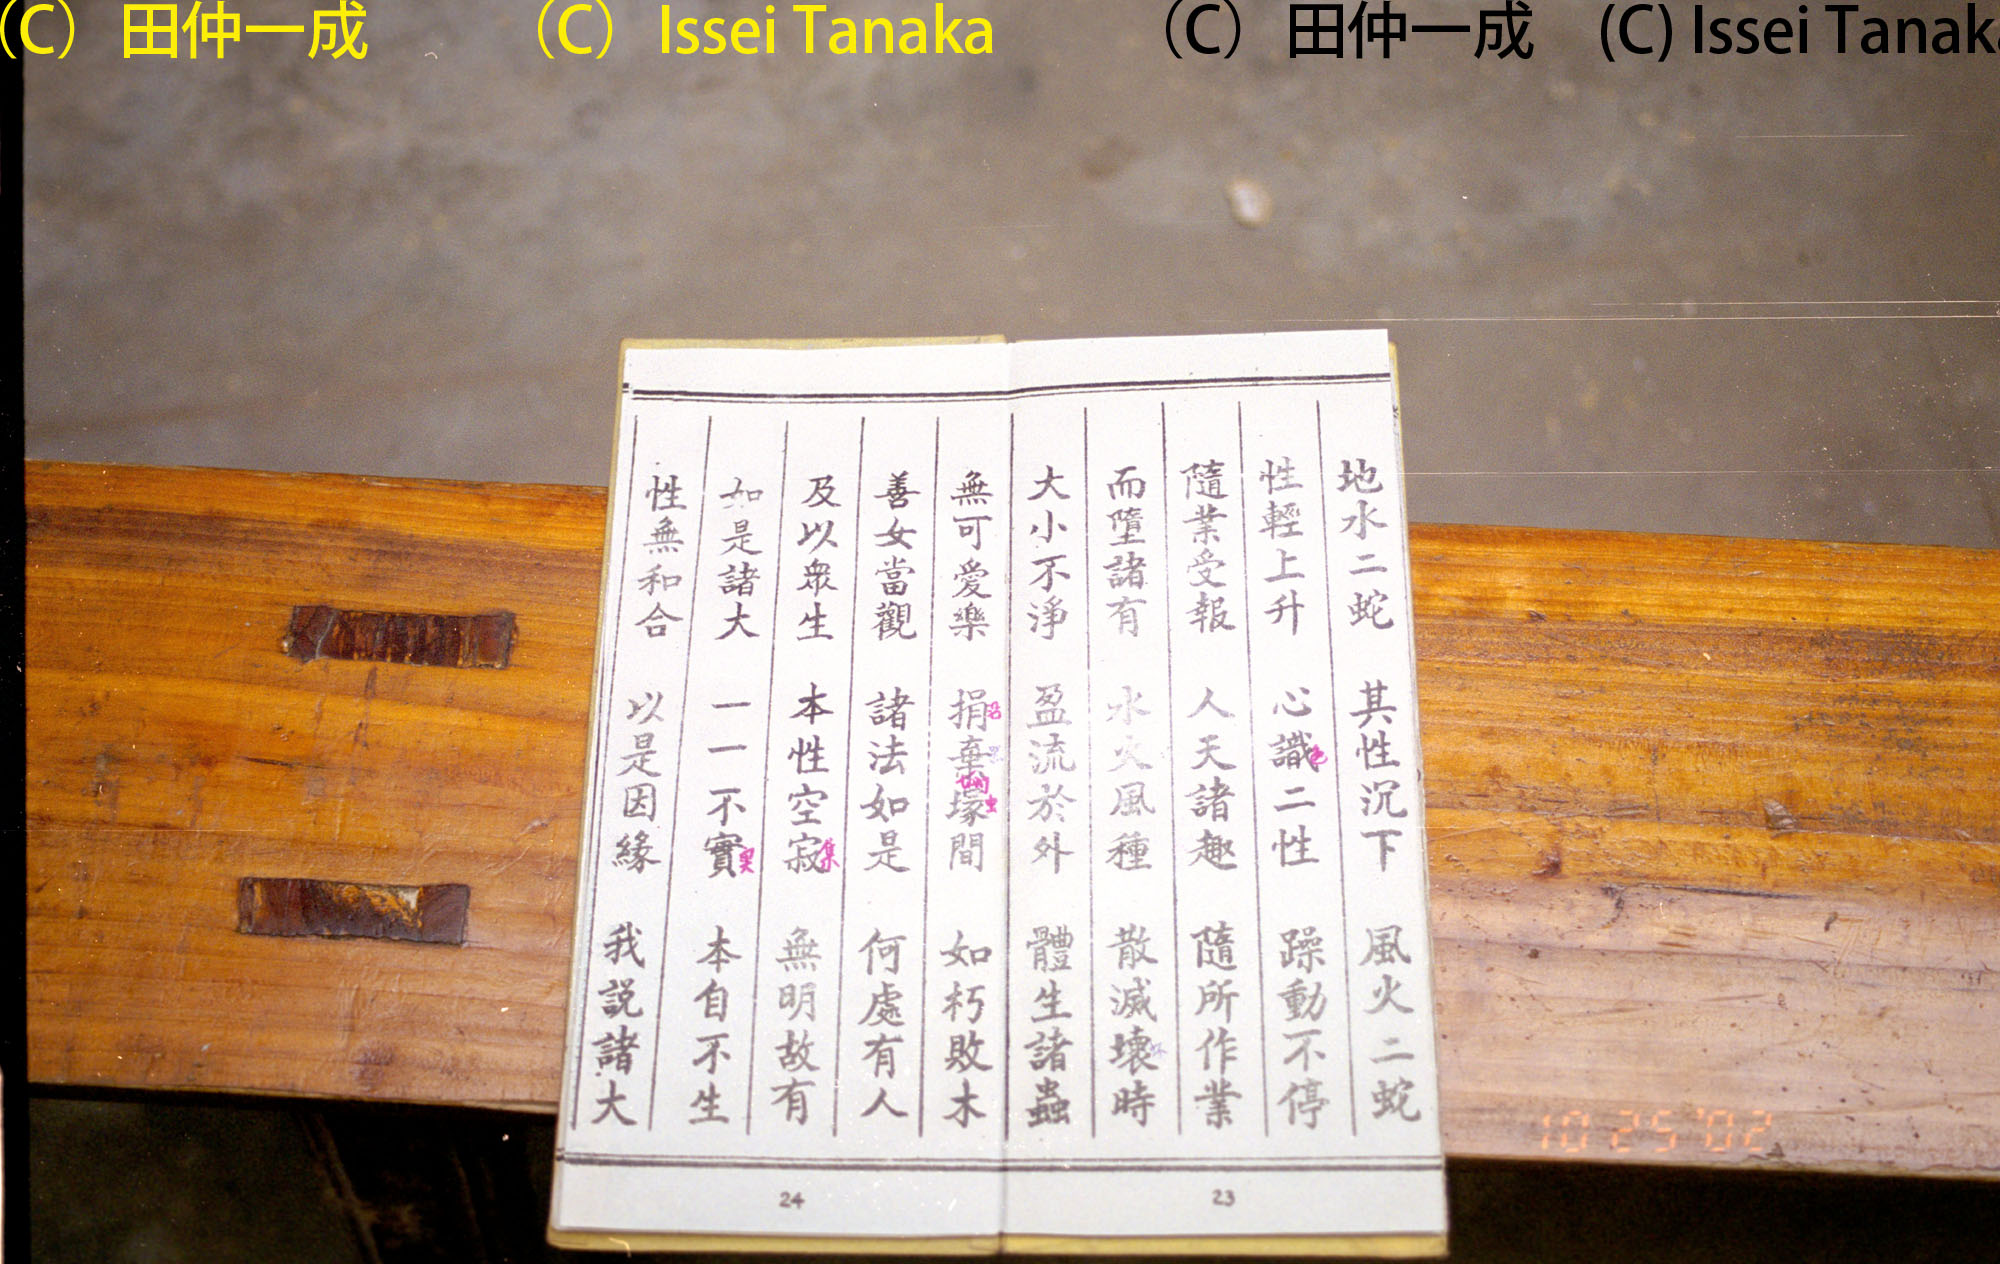 （C） 田仲一成 （C） Issei Tanaka （C） 田仲一成 (C) Issei Tanaka
地水二蛇 其性沉下 風火二蛇
性輕上升 心識二性 躁動不停
色
隨業受報 人天諸趣 隨所作業
而墮諸有 水火風種 散滅壞時
大小不淨 盈流於外 體生諸蟲
23
無可愛樂 捐棄塚間 如朽敗木
善女當觀 諸法如是 何處有人
及以衆生 本性空寂 無明故有
集
如是諸大 一一不實 本自不生
実
性無和合 以是因緣 我説諸大
24
10 25 '02